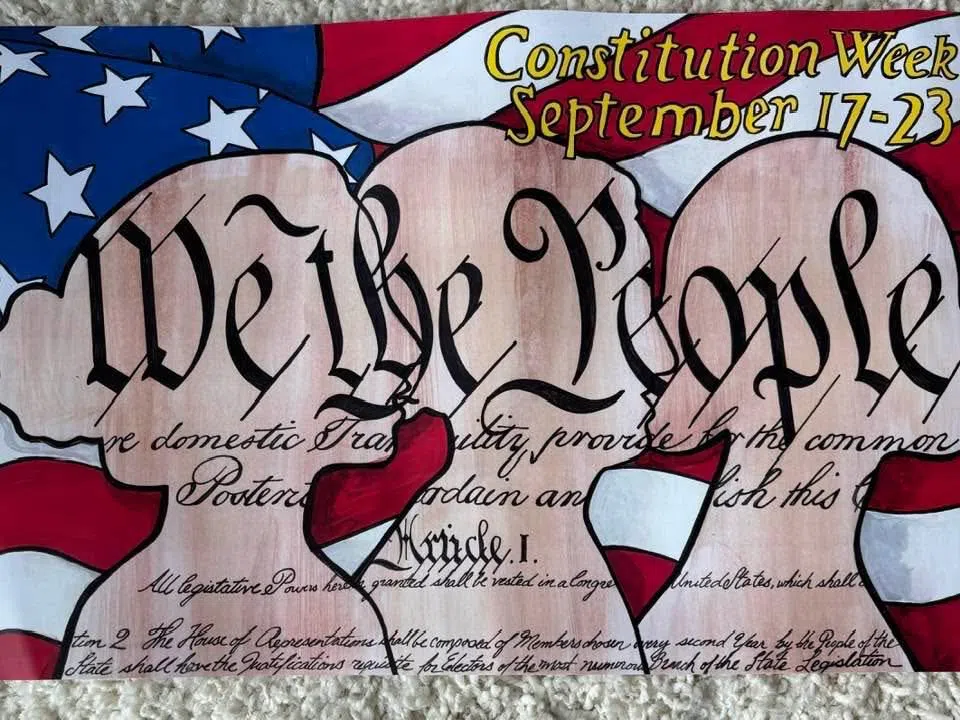 Constitution Week
September 17-23
We the People
re domestic Tran quility, provide for the common
Posteri ordain an lish this C
Article. I.
All legislative Powers herein granted shall be vested in a Congre United States, which shall c
tion 2 The House of Representatives shall be composed of Members chosen every second Year by the People of the
State shall have the Qualifications requisite for Electors of the most numerous Branch of the State Legislation